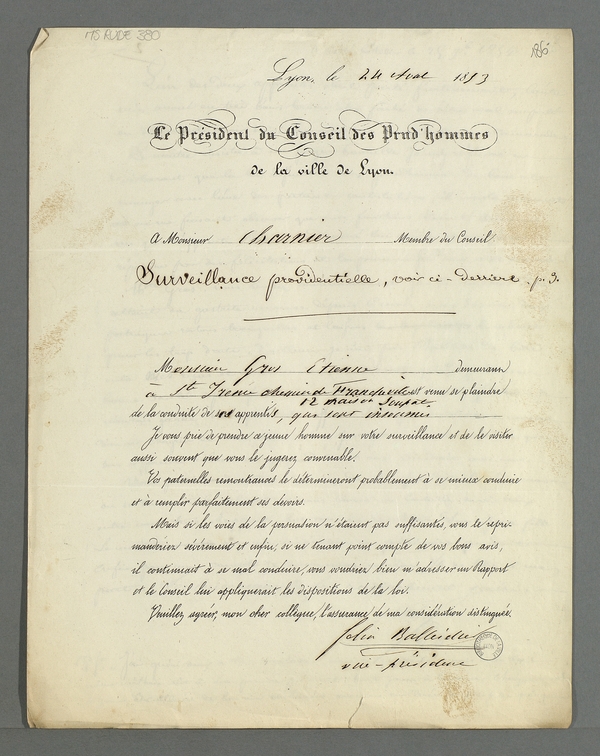 MS RUDE 380
Lyon, le 24 1853
Le Président du Conseil des Prud'hommes
de la ville de Lyon.
A Monsieur Charnier Membre du Conseil.
Surveillance providentielle, voir ci-derrière. p. 3.
Monsieur Gros Etienne demeurant
à St Irénée chemin de Francheville est venu se plaindre
12 maison
de la conduite de ses apprentis, qui sont insoumis
Je vous prie de prendre ce jeune homme sous votre surveillance et de le visiter
aussi souvent que vous le jugerez convenable.
Vos paternelles remontrances le détermineront probablement à se mieux conduire
et à remplir parfaitement ses devoirs.
Mais si les voies de la persuasion n'étaient pas suffisantes, vous le répri-
manderiez sévèrement et enfin, si ne tenant point compte de vos bons avis,
il continuait à se mal conduire, vous voudriez bien m'adresser un Rapport
et le Conseil lui appliquerait les dispositions de la loi.
Veuillez agréer, mon cher collègue, l'assurance de ma considération distinguée.
vice-président